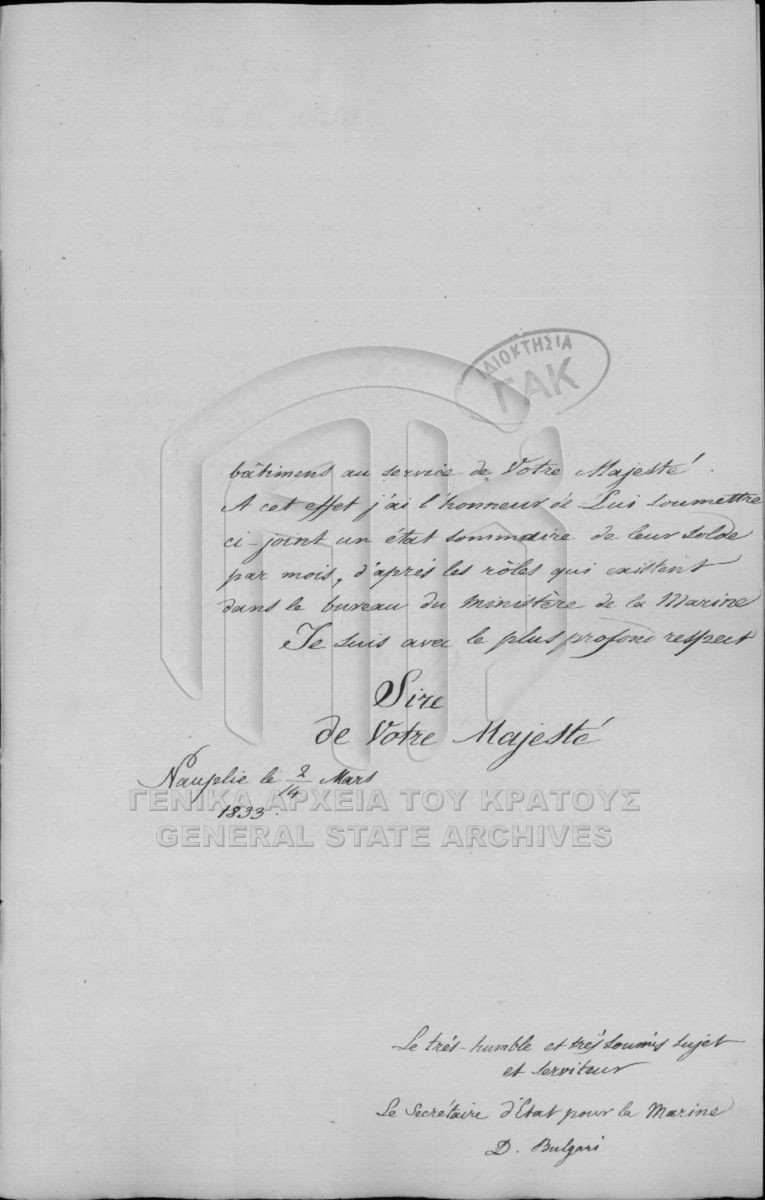 ΙΔΙΟΚΤΗΣΙΑ
ΓΑΚ
bâtimens au service de Votre Majesté.
A cet effet j'ai l'honneur de Lui soumettre
ci-joint un état sommaire de leur solde
par mois, d'après les rôles qui existent
dans le bureau du ministère de la Marine
Je suis avec le plus profond respect
Sire
de Votre Majesté
Nauplie le 2/14 Mars
1833.
ΓΕΝΙΚΑ ΑΡΧΕΙΑ ΤΟΥ ΚΡΑΤΟΥΣ
GENERAL STATE ARCHIVES
Le très-humble et très soumis sujet
et serviteur
Le Secrétaire d'Etat pour la Marine
D. Bulgari